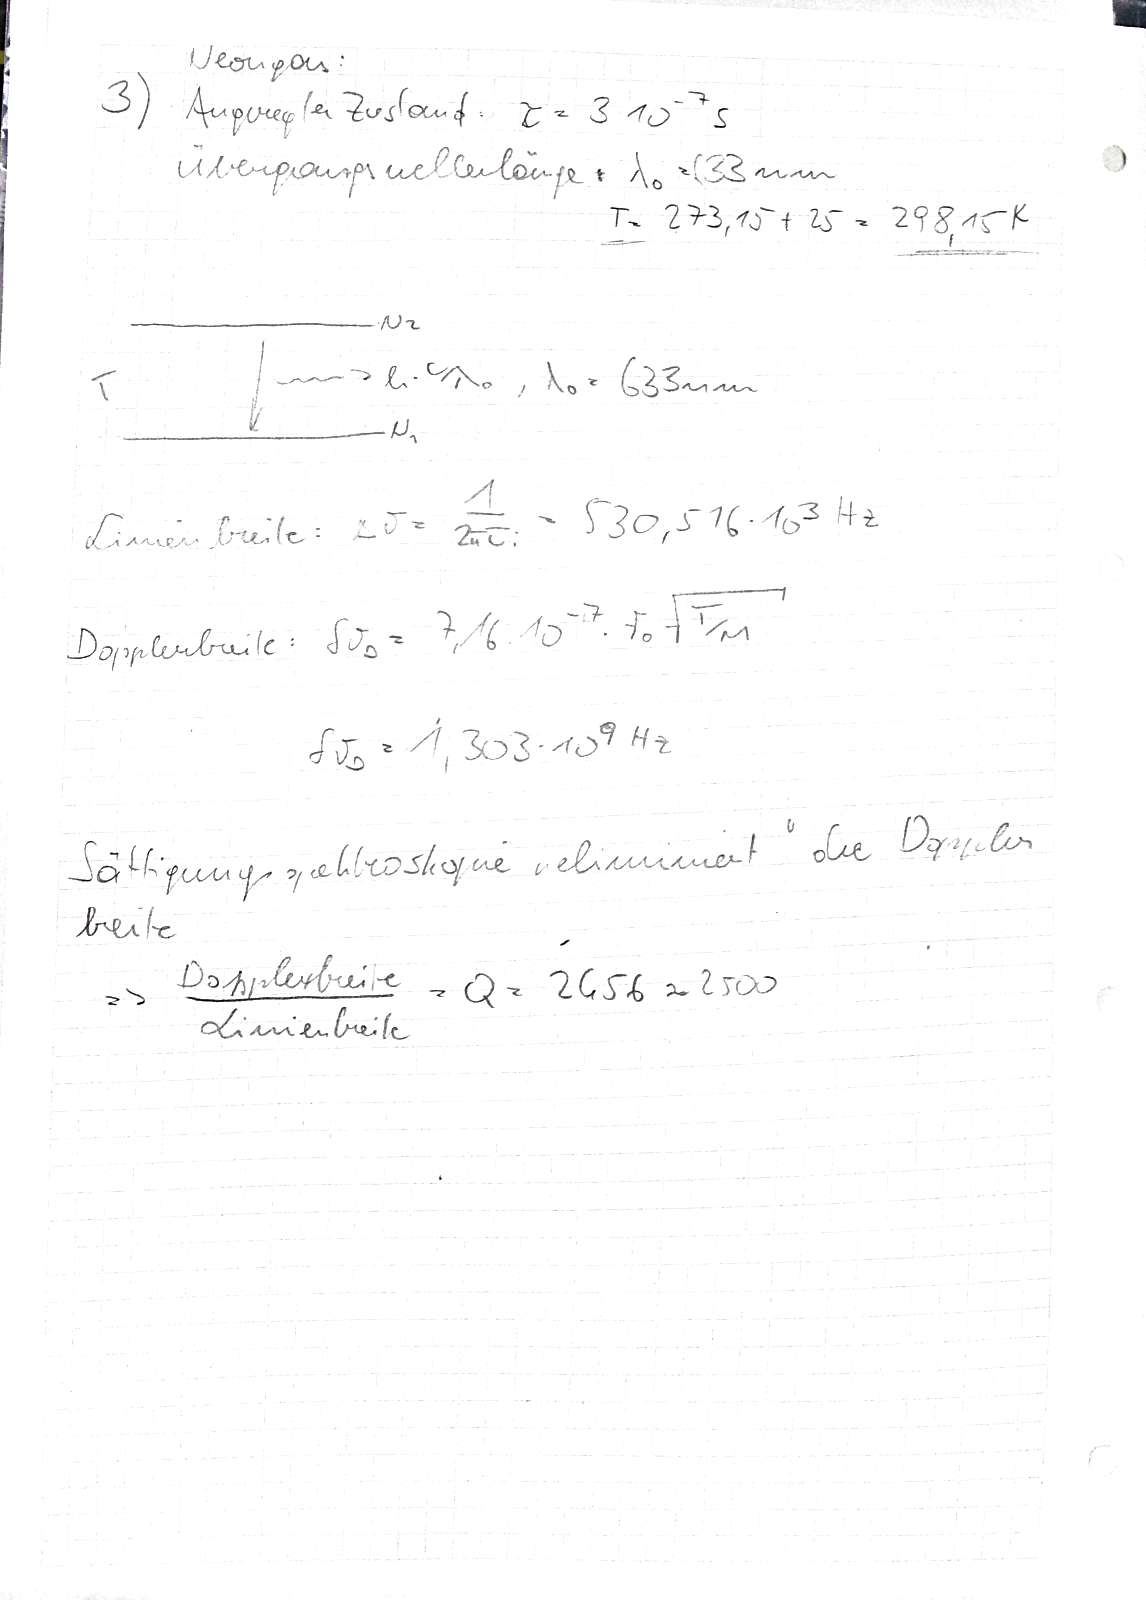 Neongas:
3) Angeregter Zustand: τ = 3 10⁻⁷ s
Übergangswellenlänge: λ₀ = 633 nm
T = 273,15 + 25 = 298,15 K
N₂
T → h·c/λ₀, λ₀ = 633 nm
N₁
Linienbreite: Δν = 1/2πτᵢ = 530,516·10³ Hz
Dopplerbreite: δν_D = 7,16·10⁻⁷·ν₀ √T/M
δν_D = 1,303·10⁹ Hz
Sättigungsspektroskopie "eliminiert" die Doppler
breite
=> Dopplerbreite/Linienbreite = Q = 2456 ≈ 2500